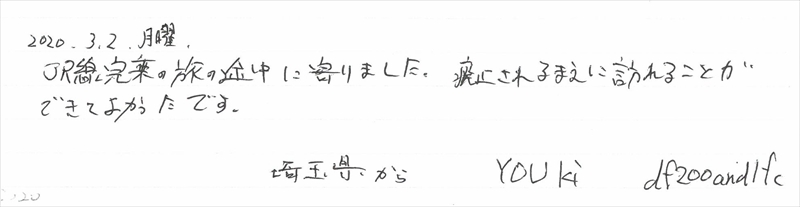 2020.3.2.月曜.
JR線完乗の旅の途中に寄りました。廃止されるまえに訪れることが
できてよかったです。
埼玉県から YOUKi df200and1fc